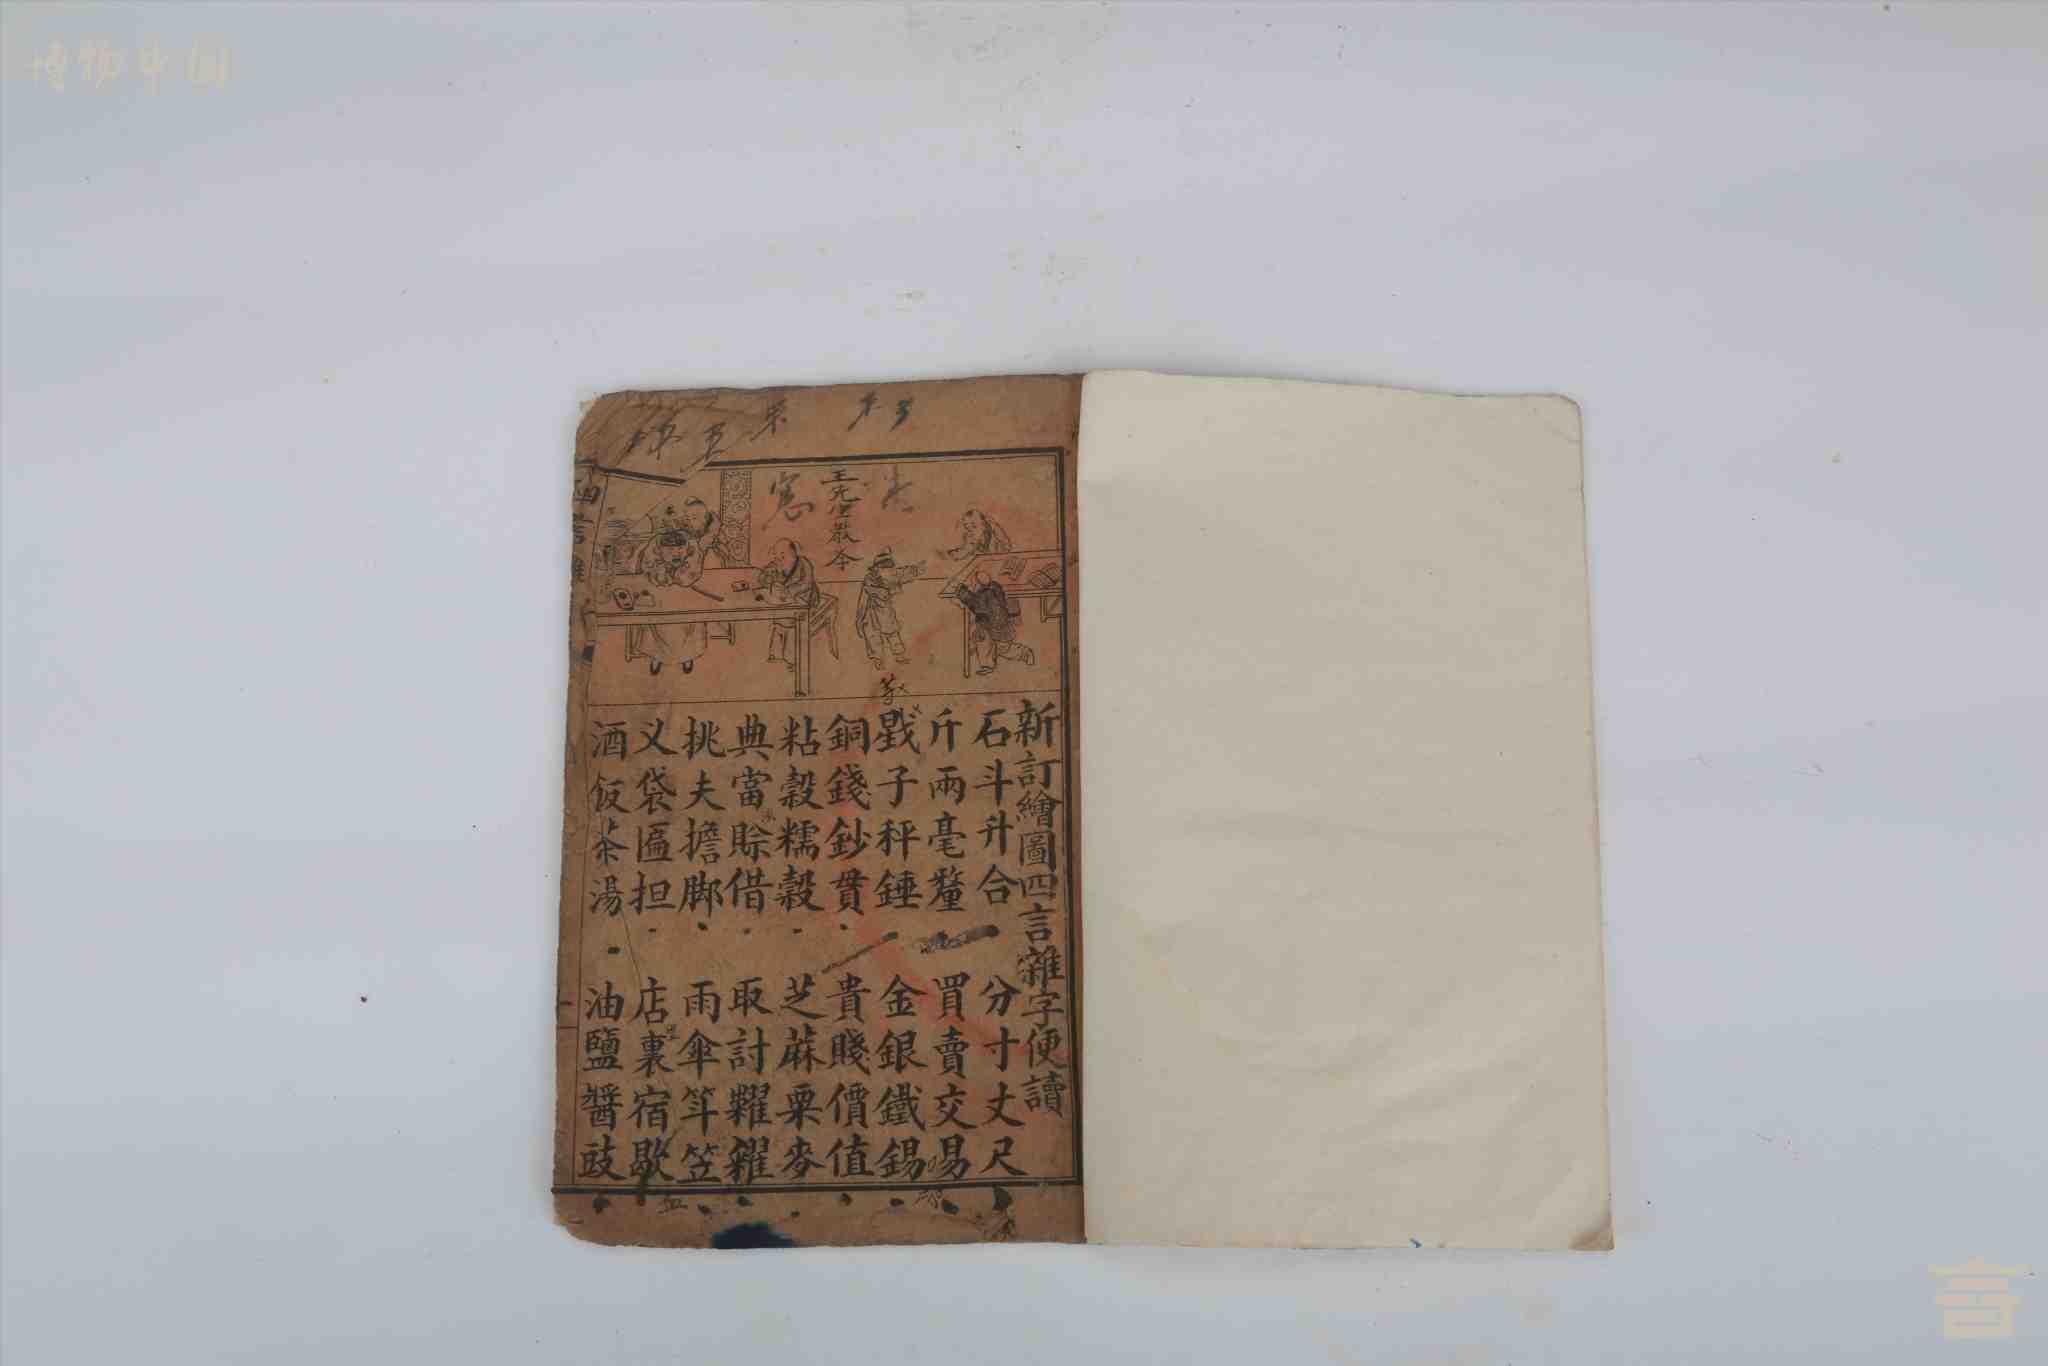 博物中国
新訂繪圖四言雜字便讀
石斗升合 分寸丈尺
斤兩毫釐 買賣交易
戥子秤錘 金銀鐵錫
銅錢鈔貫 貴賤價值
粘穀糯穀 芝蔴粟麥
典當賒借 取討糶糴
挑夫擔脚 雨傘笠
义袋匾担 店裏宿歇
酒飯茶湯 油鹽醬豉